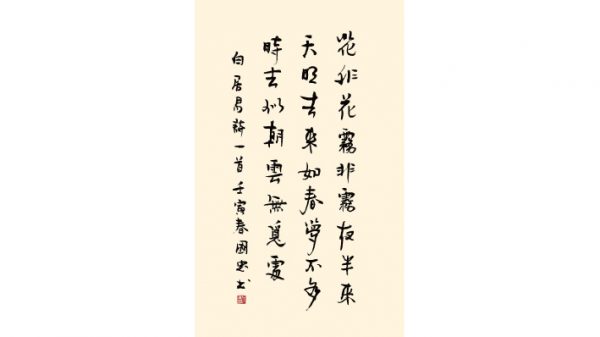 花非花霧非霧夜半來
天明去來如春夢不多
時去似朝雲無覓處
白居易詩一首壬寅春國忠书